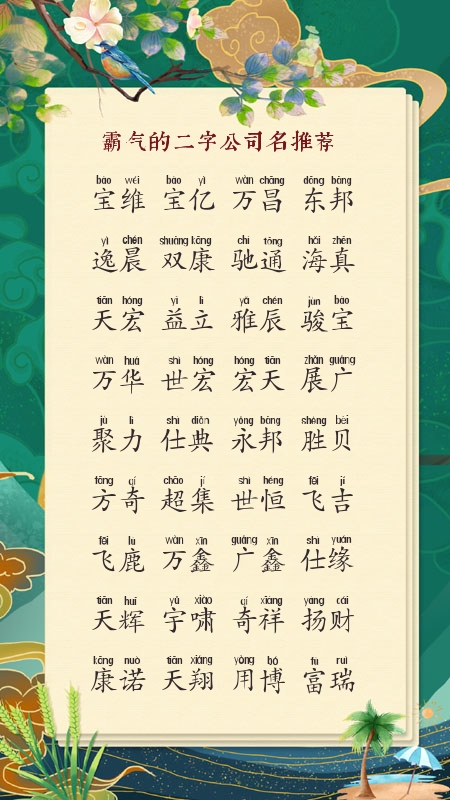 霸气的二字公司名推荐
bǎo wéi bǎo yì wàn chāng dōng bāng
宝维 宝亿 万昌 东邦
yì chén shuāng kāng chí tōng hǎi zhēn
逸晨 双康 驰通 海真
tiān hóng yì lì yǎ chén jùn bǎo
天宏 益立 雅辰 骏宝
wàn huá shì hóng hóng tiān zhǎn guǎng
万华 世宏 宏天 展广
jù lì shì diǎn yǒng bāng shèng bèi
聚力 仕典 永邦 胜贝
fāng qí chāo jí shì héng fēi jí
方奇 超集 世恒 飞吉
fēi lù wàn xīn guǎng xīn shì yuán
飞鹿 万鑫 广鑫 仕缘
tiān huī yǔ xiào qí xiáng yáng cái
天辉 宇啸 奇祥 扬财
kāng nuò tiān xiáng yòng bó fù ruì
康诺 天翔 用博 富瑞